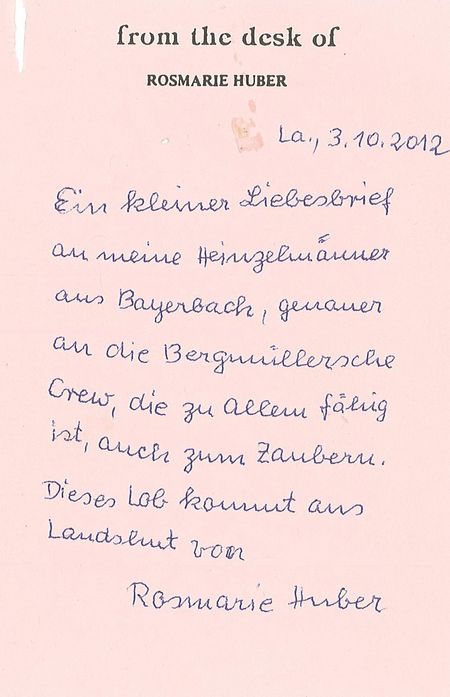 from the desk of
ROSMARIE HUBER
La., 3.10.2012
Ein kleiner Liebesbrief
an meine Heinzelmänner
aus Bayerbach, genauer
an die Bergmüllersche
Crew, die zu Allem fähig
ist, auch zum Zaubern.
Dieses Lob kommt aus
Landshut von
Rosmarie Huber